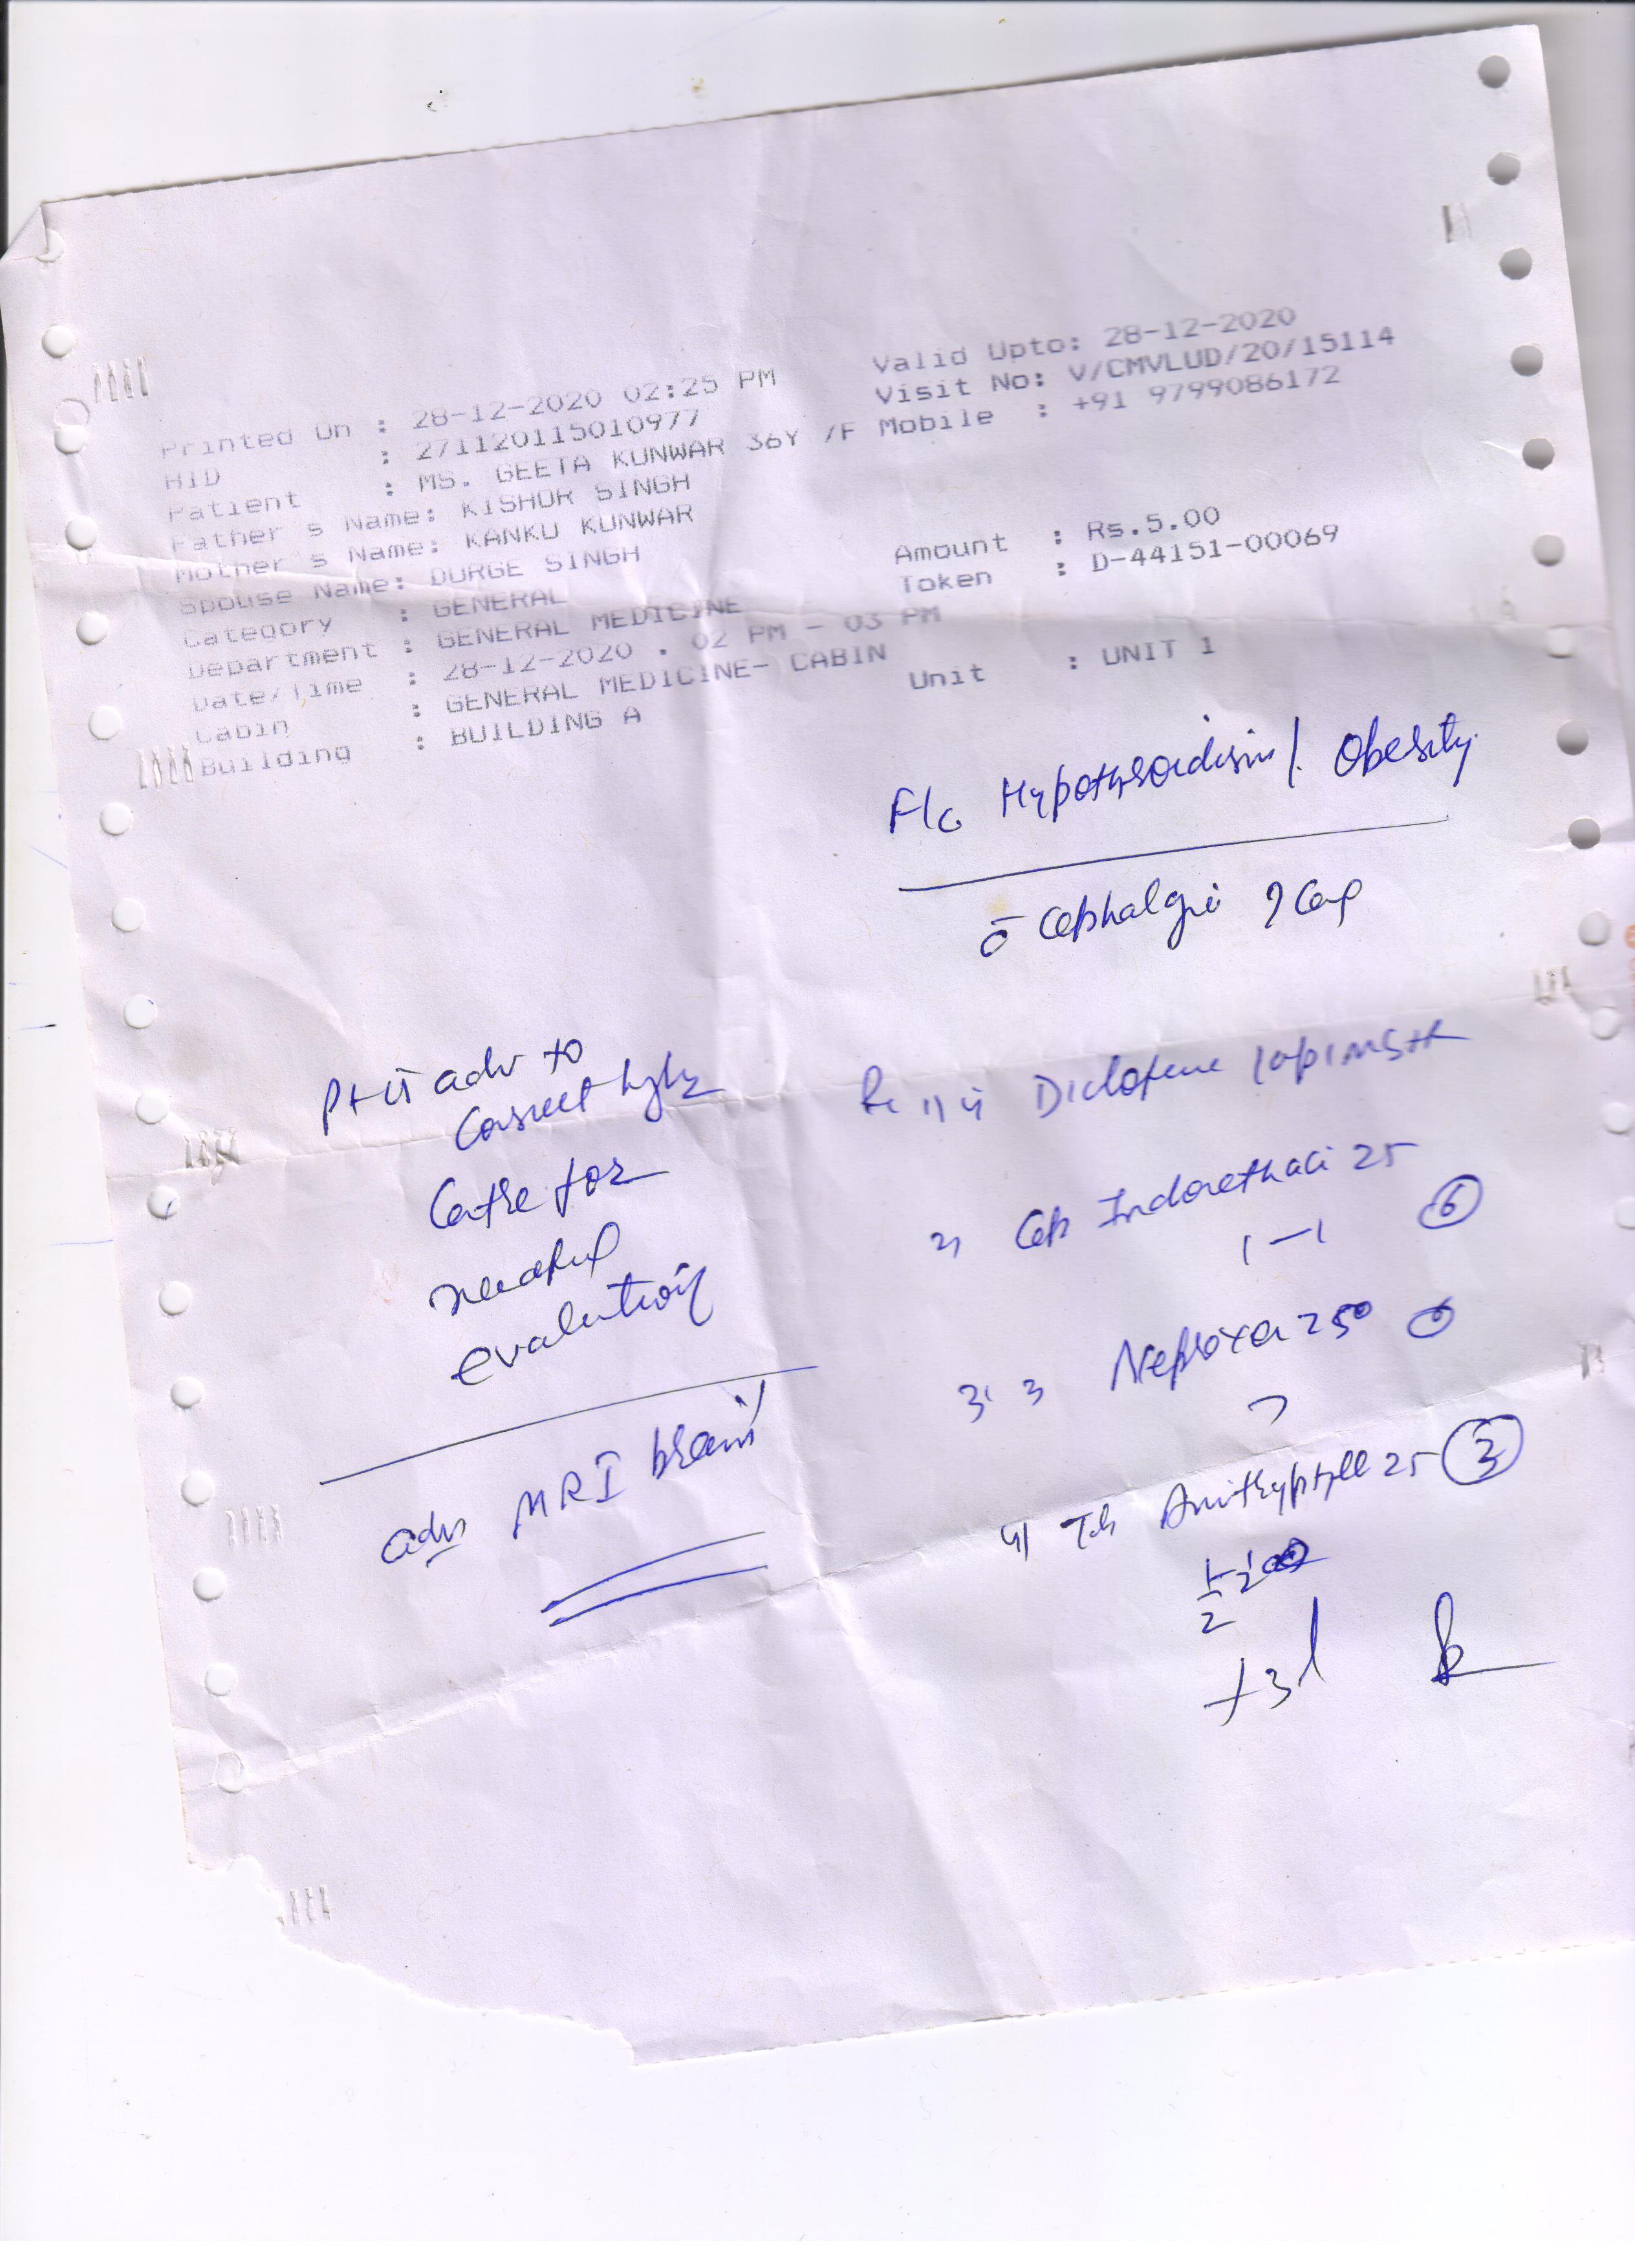 Printed On : 28-12-2020 02:25 PM
Valid Upto: 28-12-2020
HID : 271120115010977
Visit No: V/CMVLUD/20/15114
Patient : MS. GEETA KUNWAR 36Y /F
Mobile : +91 9799086172
Father s Name: KISHOR SINGH
Mother s Name: KANKU KUNWAR
Spouse Name: DURGE SINGH
Amount : Rs.5.00
Category : GENERAL
Token : D-44151-00069
Department : GENERAL MEDICINE
Date/Time : 28-12-2020 , 02 PM - 03 PM
Cabin : GENERAL MEDICINE- CABIN
Unit : UNIT 1
Building : BUILDING A
Hypothyroidism / Obesity
c̄ Cephalgi
Pt adv to
Consult
Centre for
evalution
adv MRI brain
Diclofenc
2) Cap Indomethaci 25
1 - 1 6
3 Neproxen 250 6
4) Tab Amitryptyll 25 3
1/2